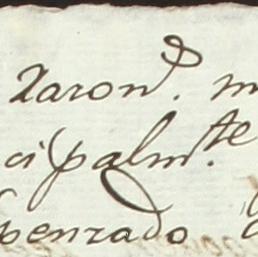 Xaron^d. m
cipalm.^te
penzado